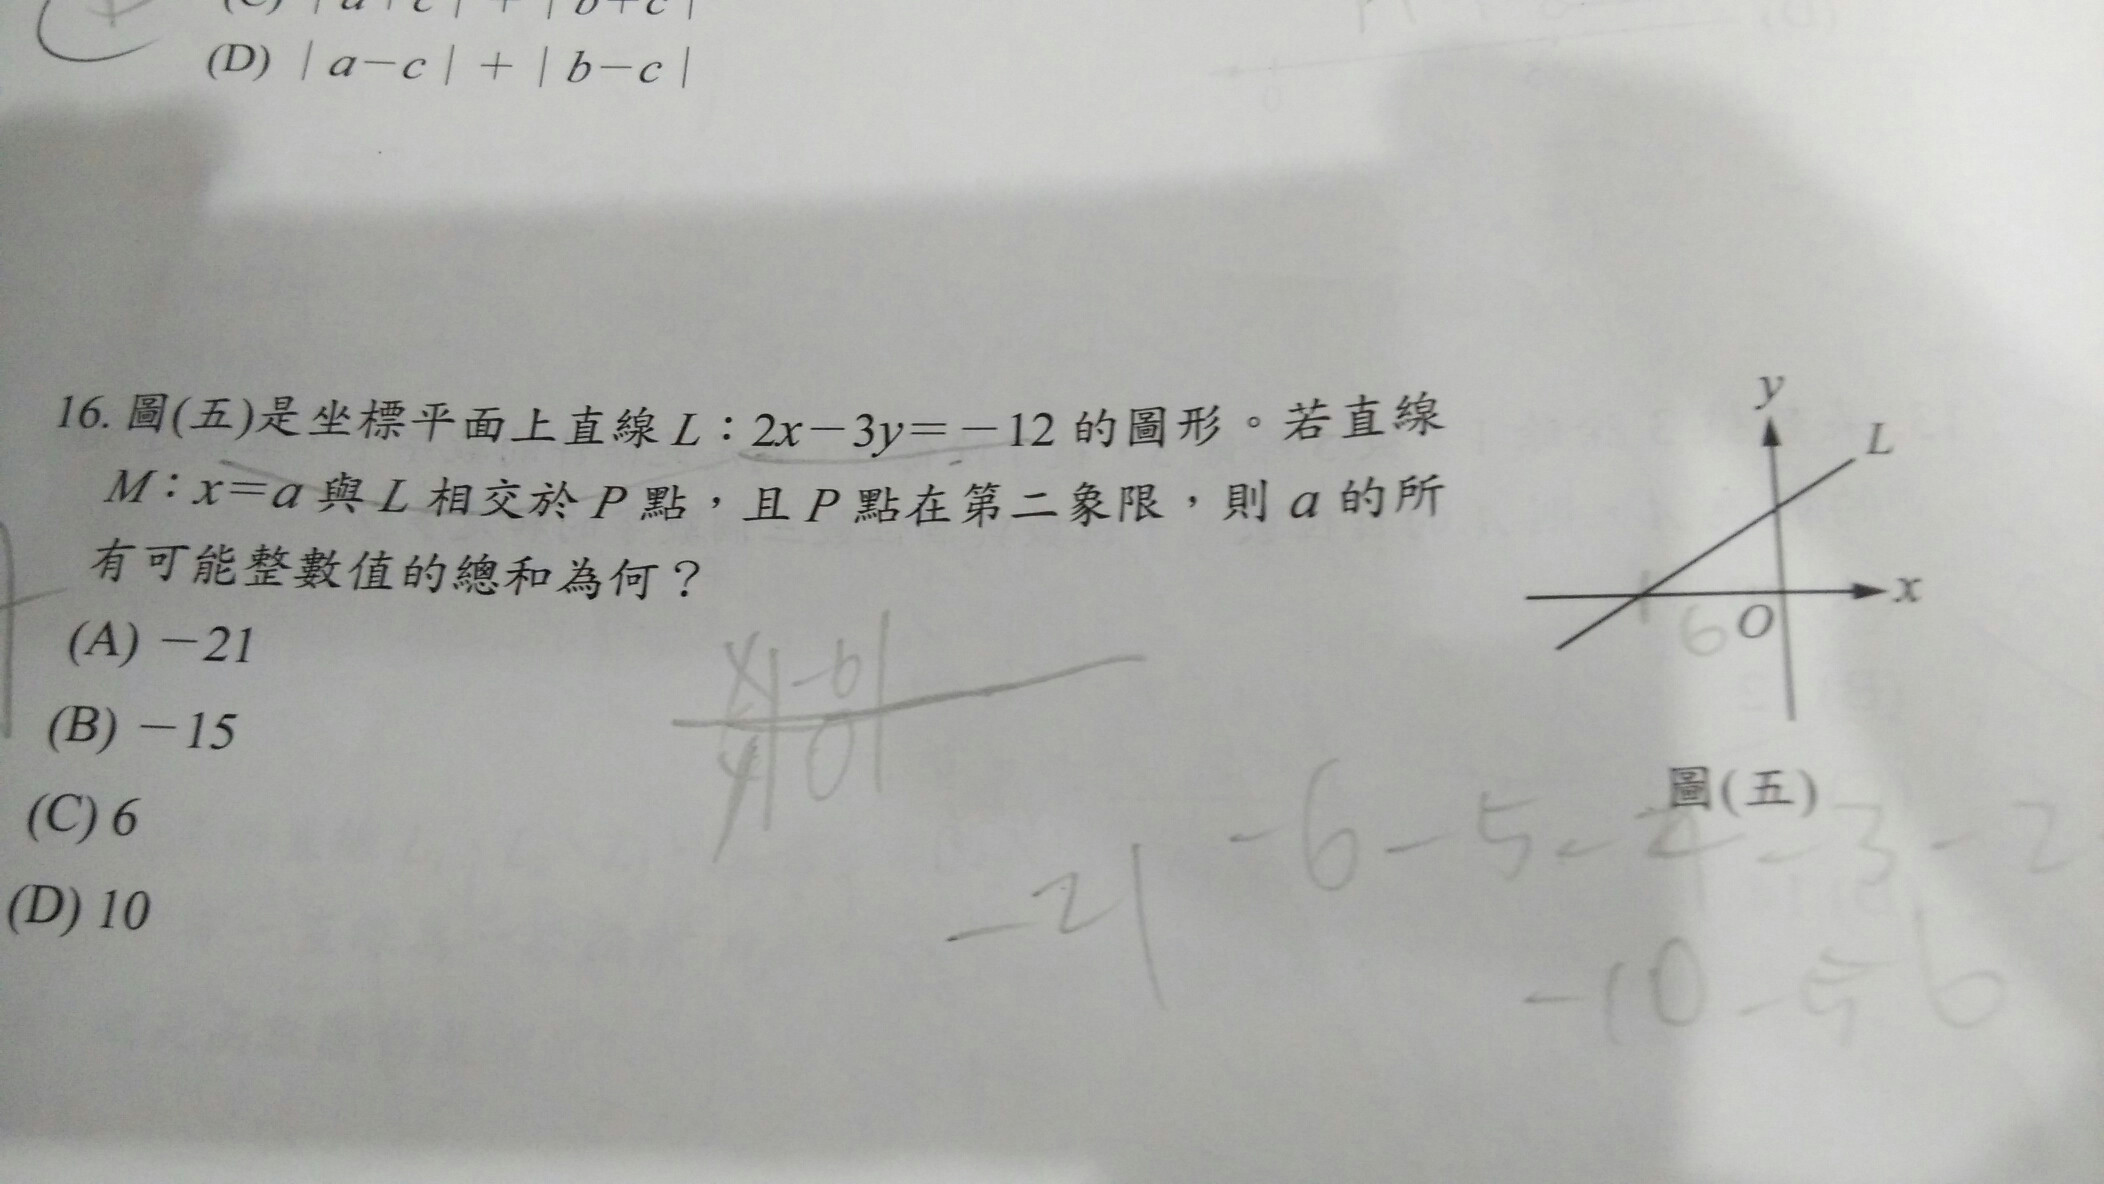 (D) | a－c | ＋ | b－c |
16. 圖(五)是坐標平面上直線 L：2x－3y＝－12 的圖形。若直線
M：x＝a 與 L 相交於 P 點，且 P 點在第二象限，則 a 的所
有可能整數值的總和為何？
(A) －21
(B) －15
(C) 6
(D) 10
y
L
x
O
6
圖(五)
x -6
y 0
-6 -5 -4 -3 -2
-21
-10 -5 6